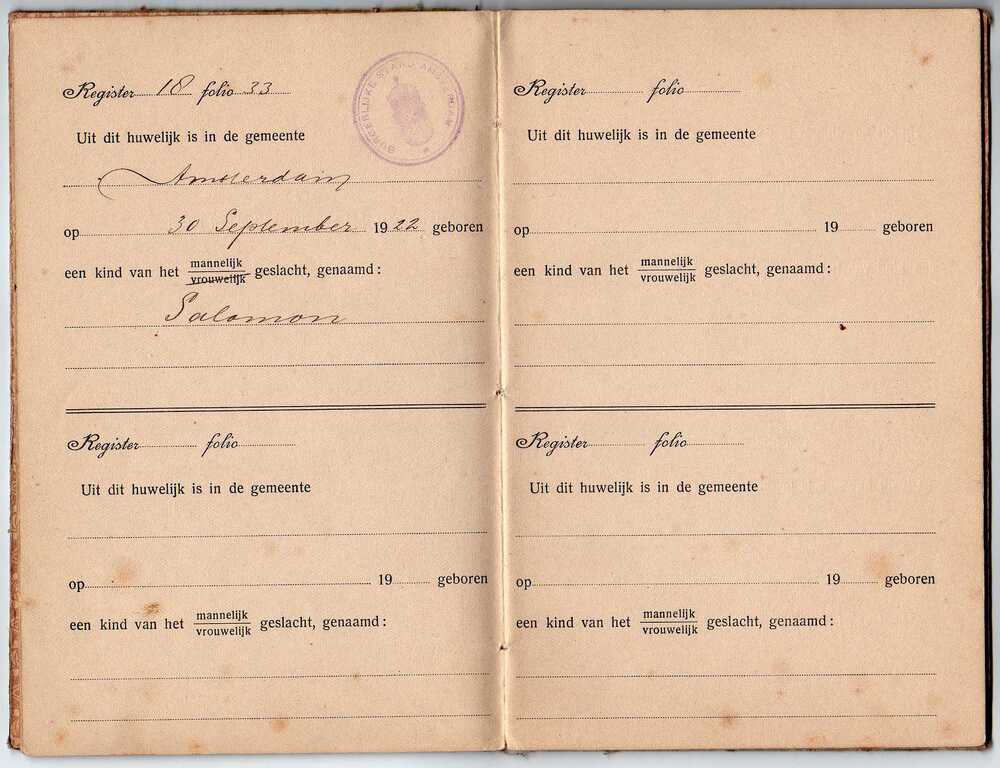 Register 18 folio 33
BURGERLIJKE STAND AMSTERDAM
Uit dit huwelijk is in de gemeente
Amsterdam
op 30 September 1922 geboren
een kind van het mannelijk
vrouwelijk geslacht, genaamd:
Salomon
Register folio
Uit dit huwelijk is in de gemeente
op 19 geboren
een kind van het mannelijk
vrouwelijk geslacht, genaamd:
Register folio
Uit dit huwelijk is in de gemeente
op 19 geboren
een kind van het mannelijk
vrouwelijk geslacht, genaamd:
Register folio
Uit dit huwelijk is in de gemeente
op 19 geboren
een kind van het mannelijk
vrouwelijk geslacht, genaamd: